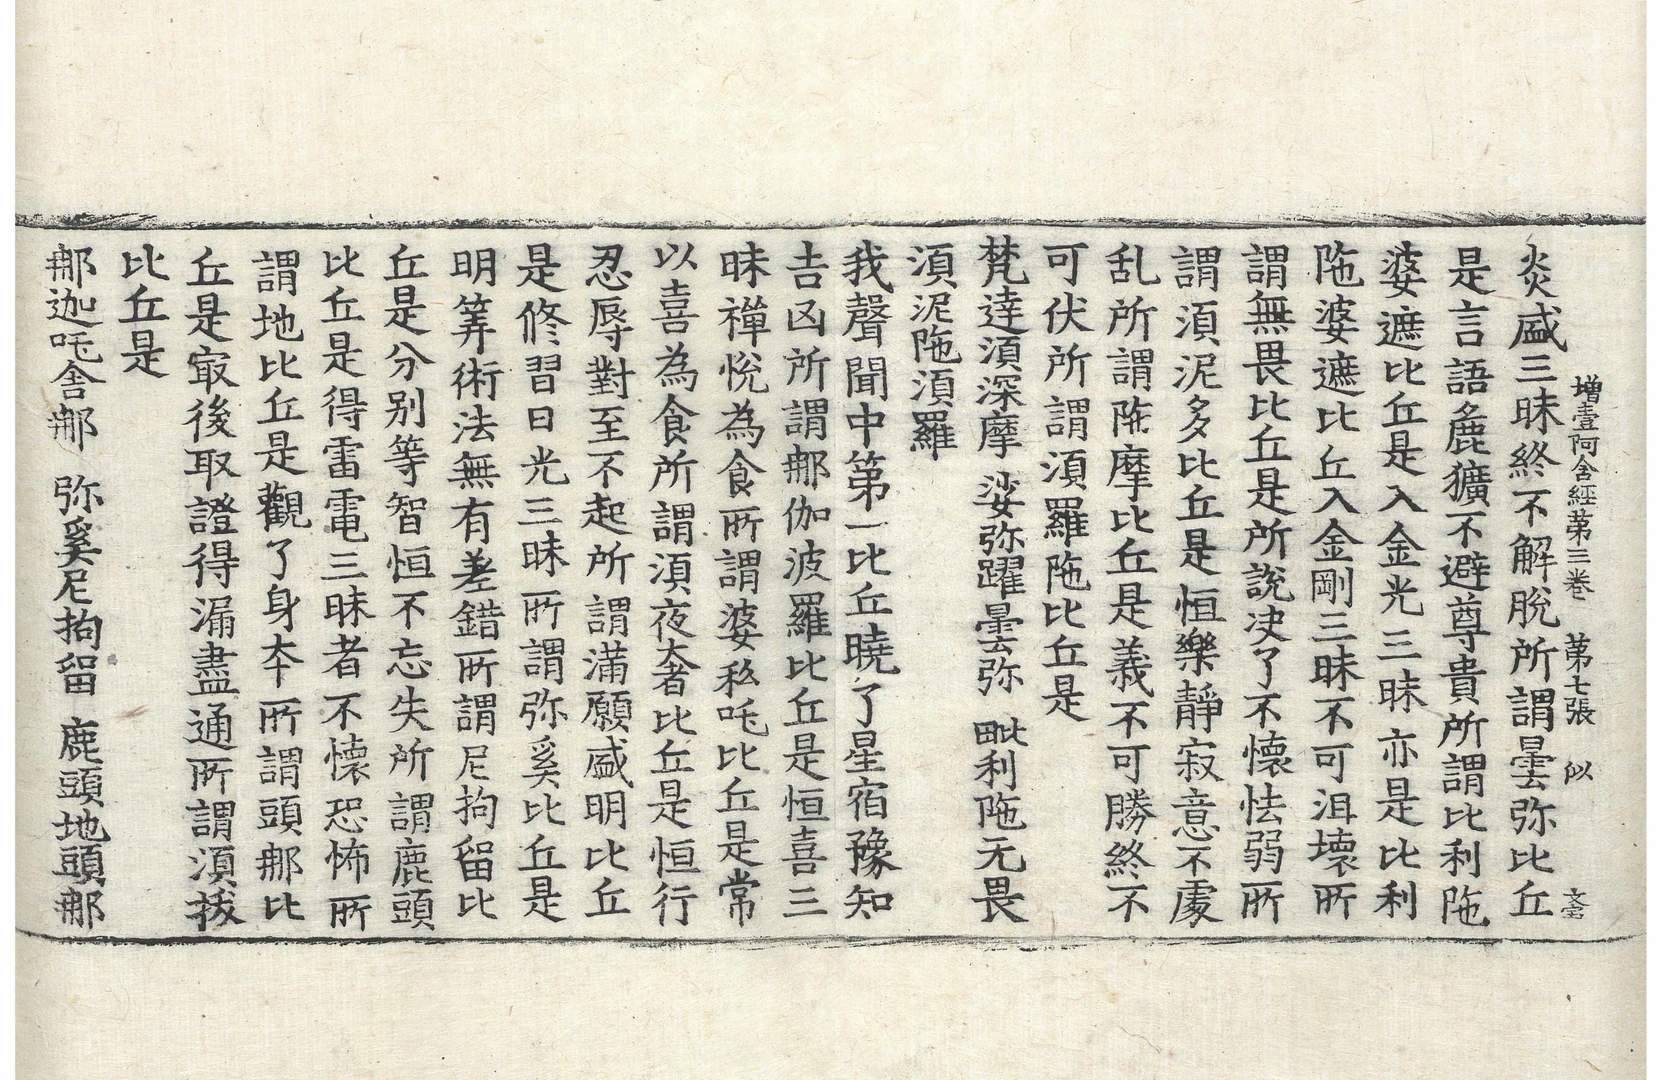 增壹阿含經第三卷　第七張　似
炎盛三昧終不解脫所謂曇弥比丘
是言語麁獷不避尊貴所謂比利陁
婆遮比丘是入金光三昧亦是比利
陁婆遮比丘入金剛三昧不可沮壞所
謂無畏比丘是所說决了不懷怯弱所
謂須泥多比丘是恒樂靜寂意不處
乱所謂陁摩比丘是義不可勝終不
可伏所謂須羅陁比丘是
梵達須深摩　娑弥躍曇弥　毗利陁无畏
須泥陁須羅
我聲聞中第一比丘曉了星宿豫知
吉凶所謂那伽波羅比丘是恒喜三
昧禪悅為食所謂婆私吒比丘是常
以喜為食所謂須夜奢比丘是恒行
忍辱對至不起所謂滿願盛明比丘
是修習日光三昧所謂弥奚比丘是
明筭術法無有差錯所謂尼拘留比
丘是分别等智恒不忘失所謂鹿頭
比丘是得雷電三昧者不懷恐怖所
謂地比丘是觀了身夲所謂頭那比
丘是㝡後取證得漏盡通所謂須拔
比丘是
那迦吒舍那　弥奚尼拘留　鹿頭地頭那